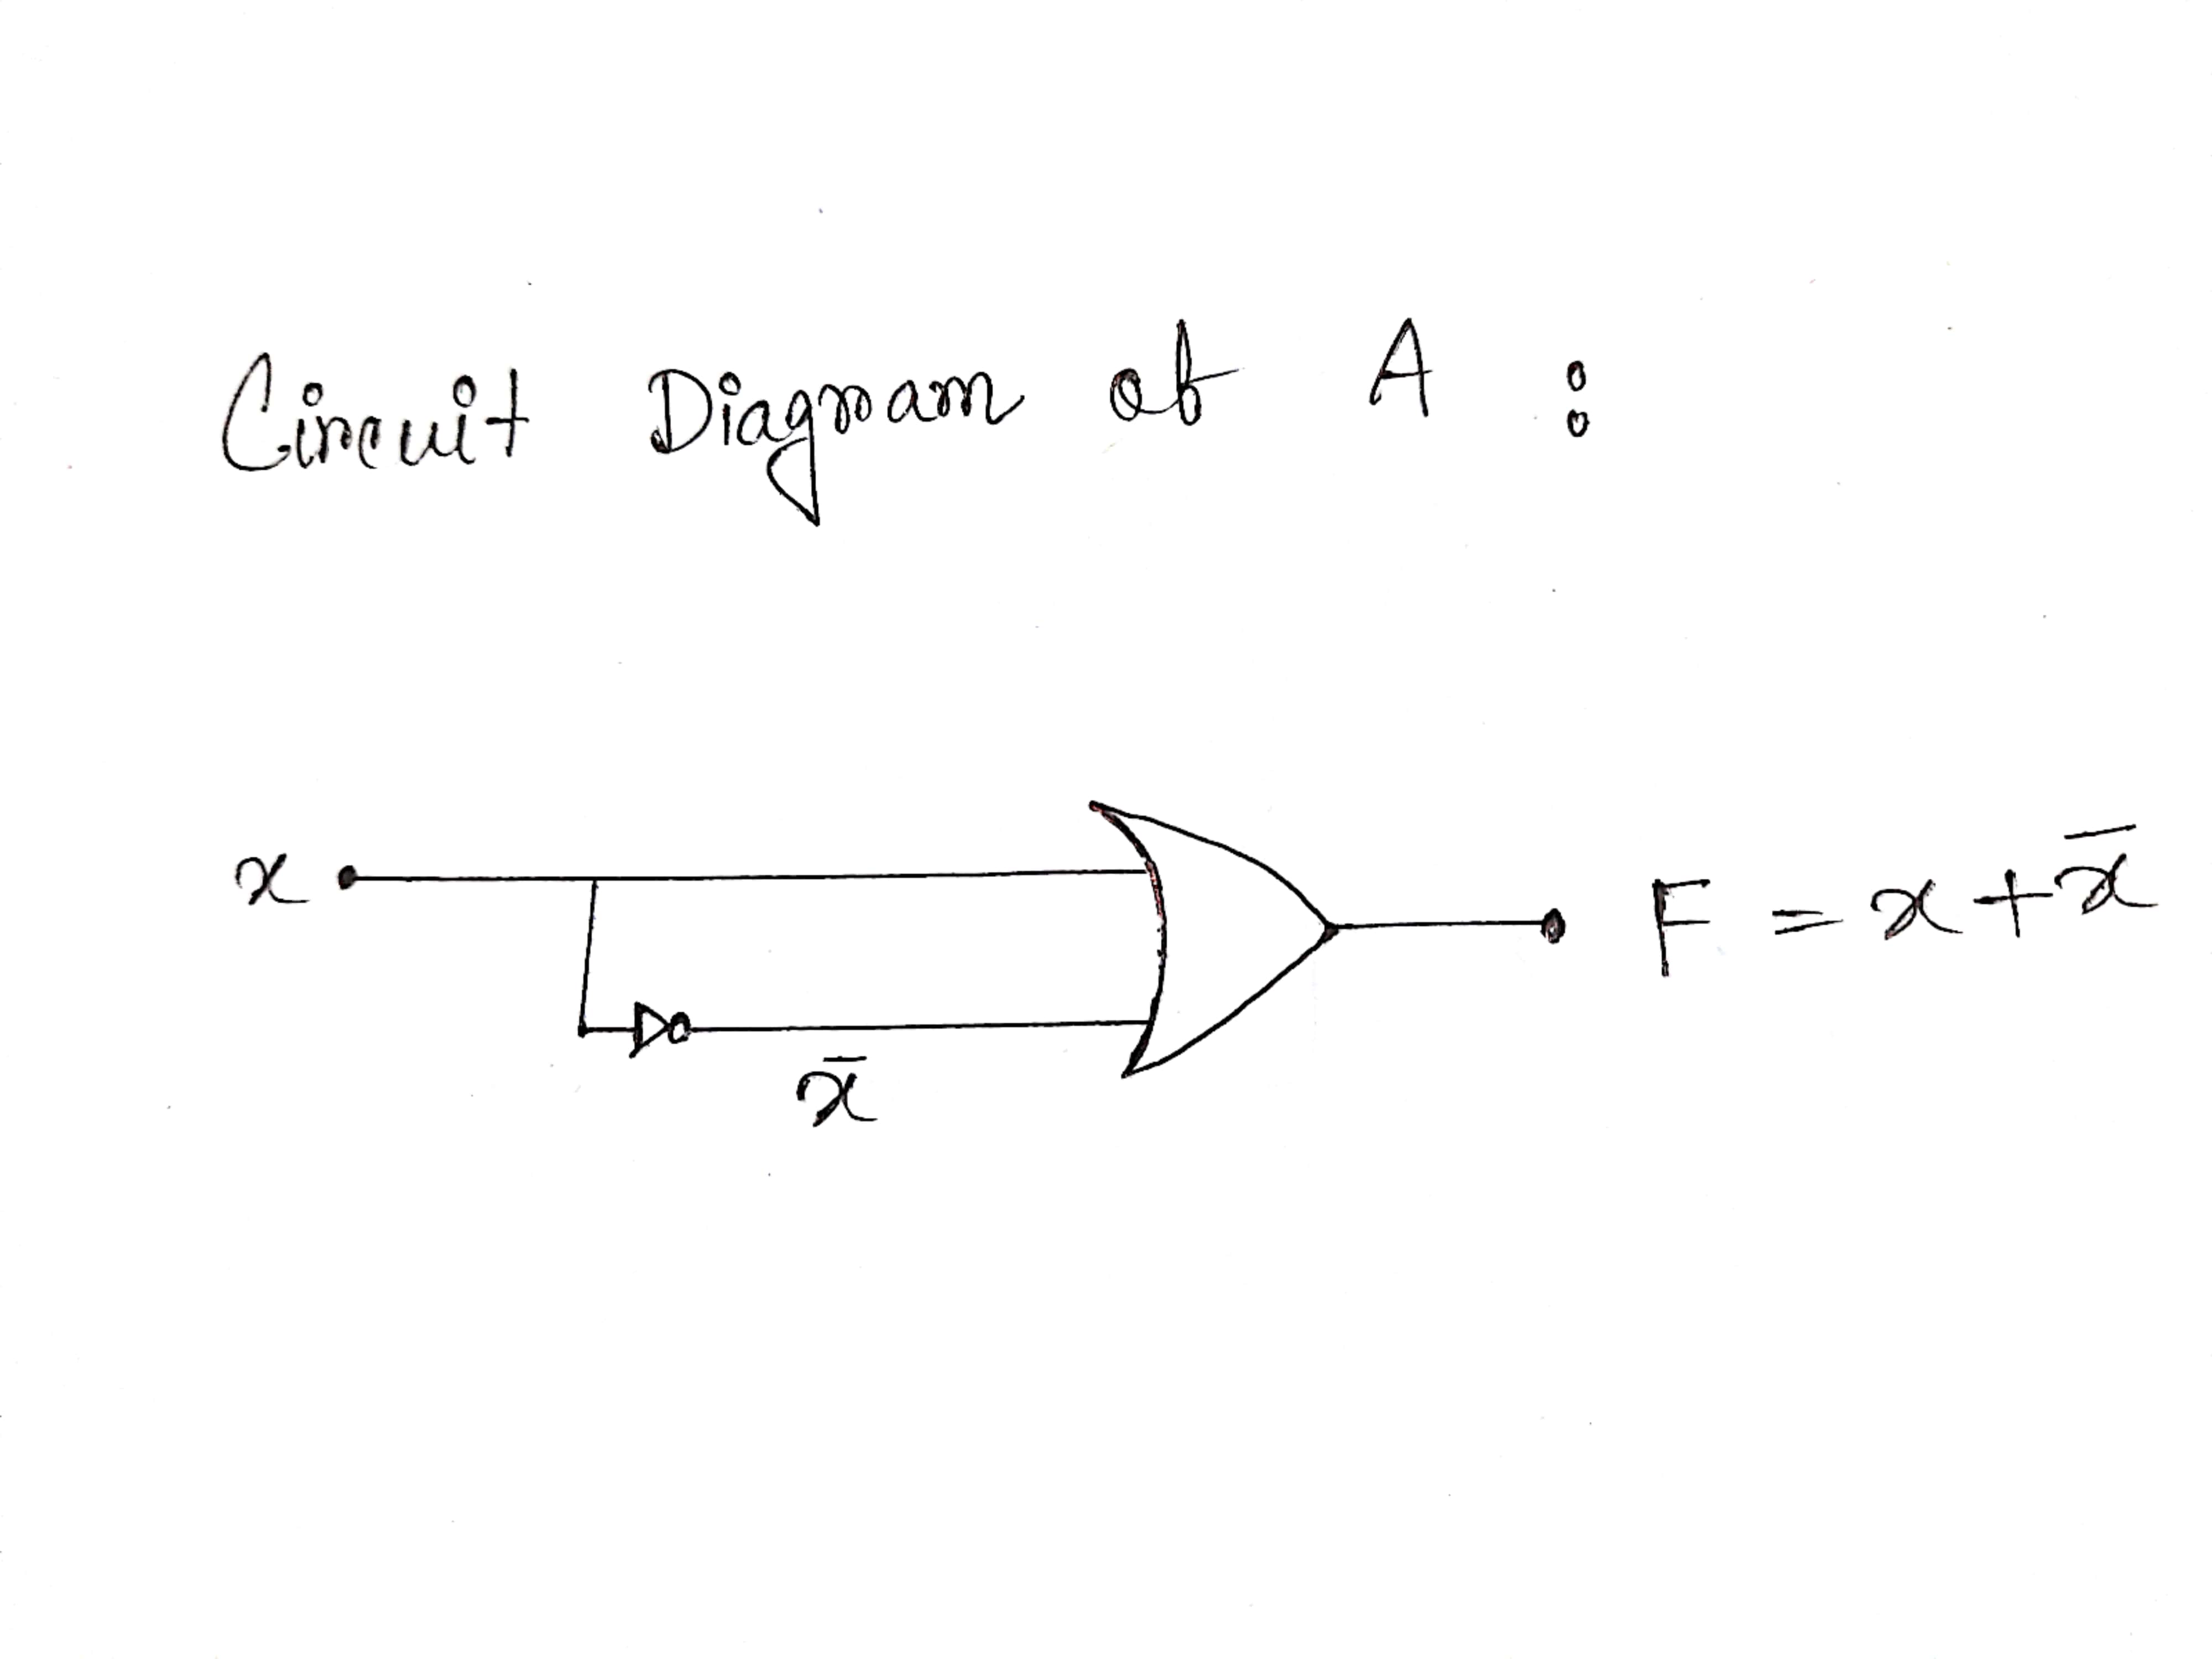 Circuit Diagram of A :
x
F = x + x̅
x̅